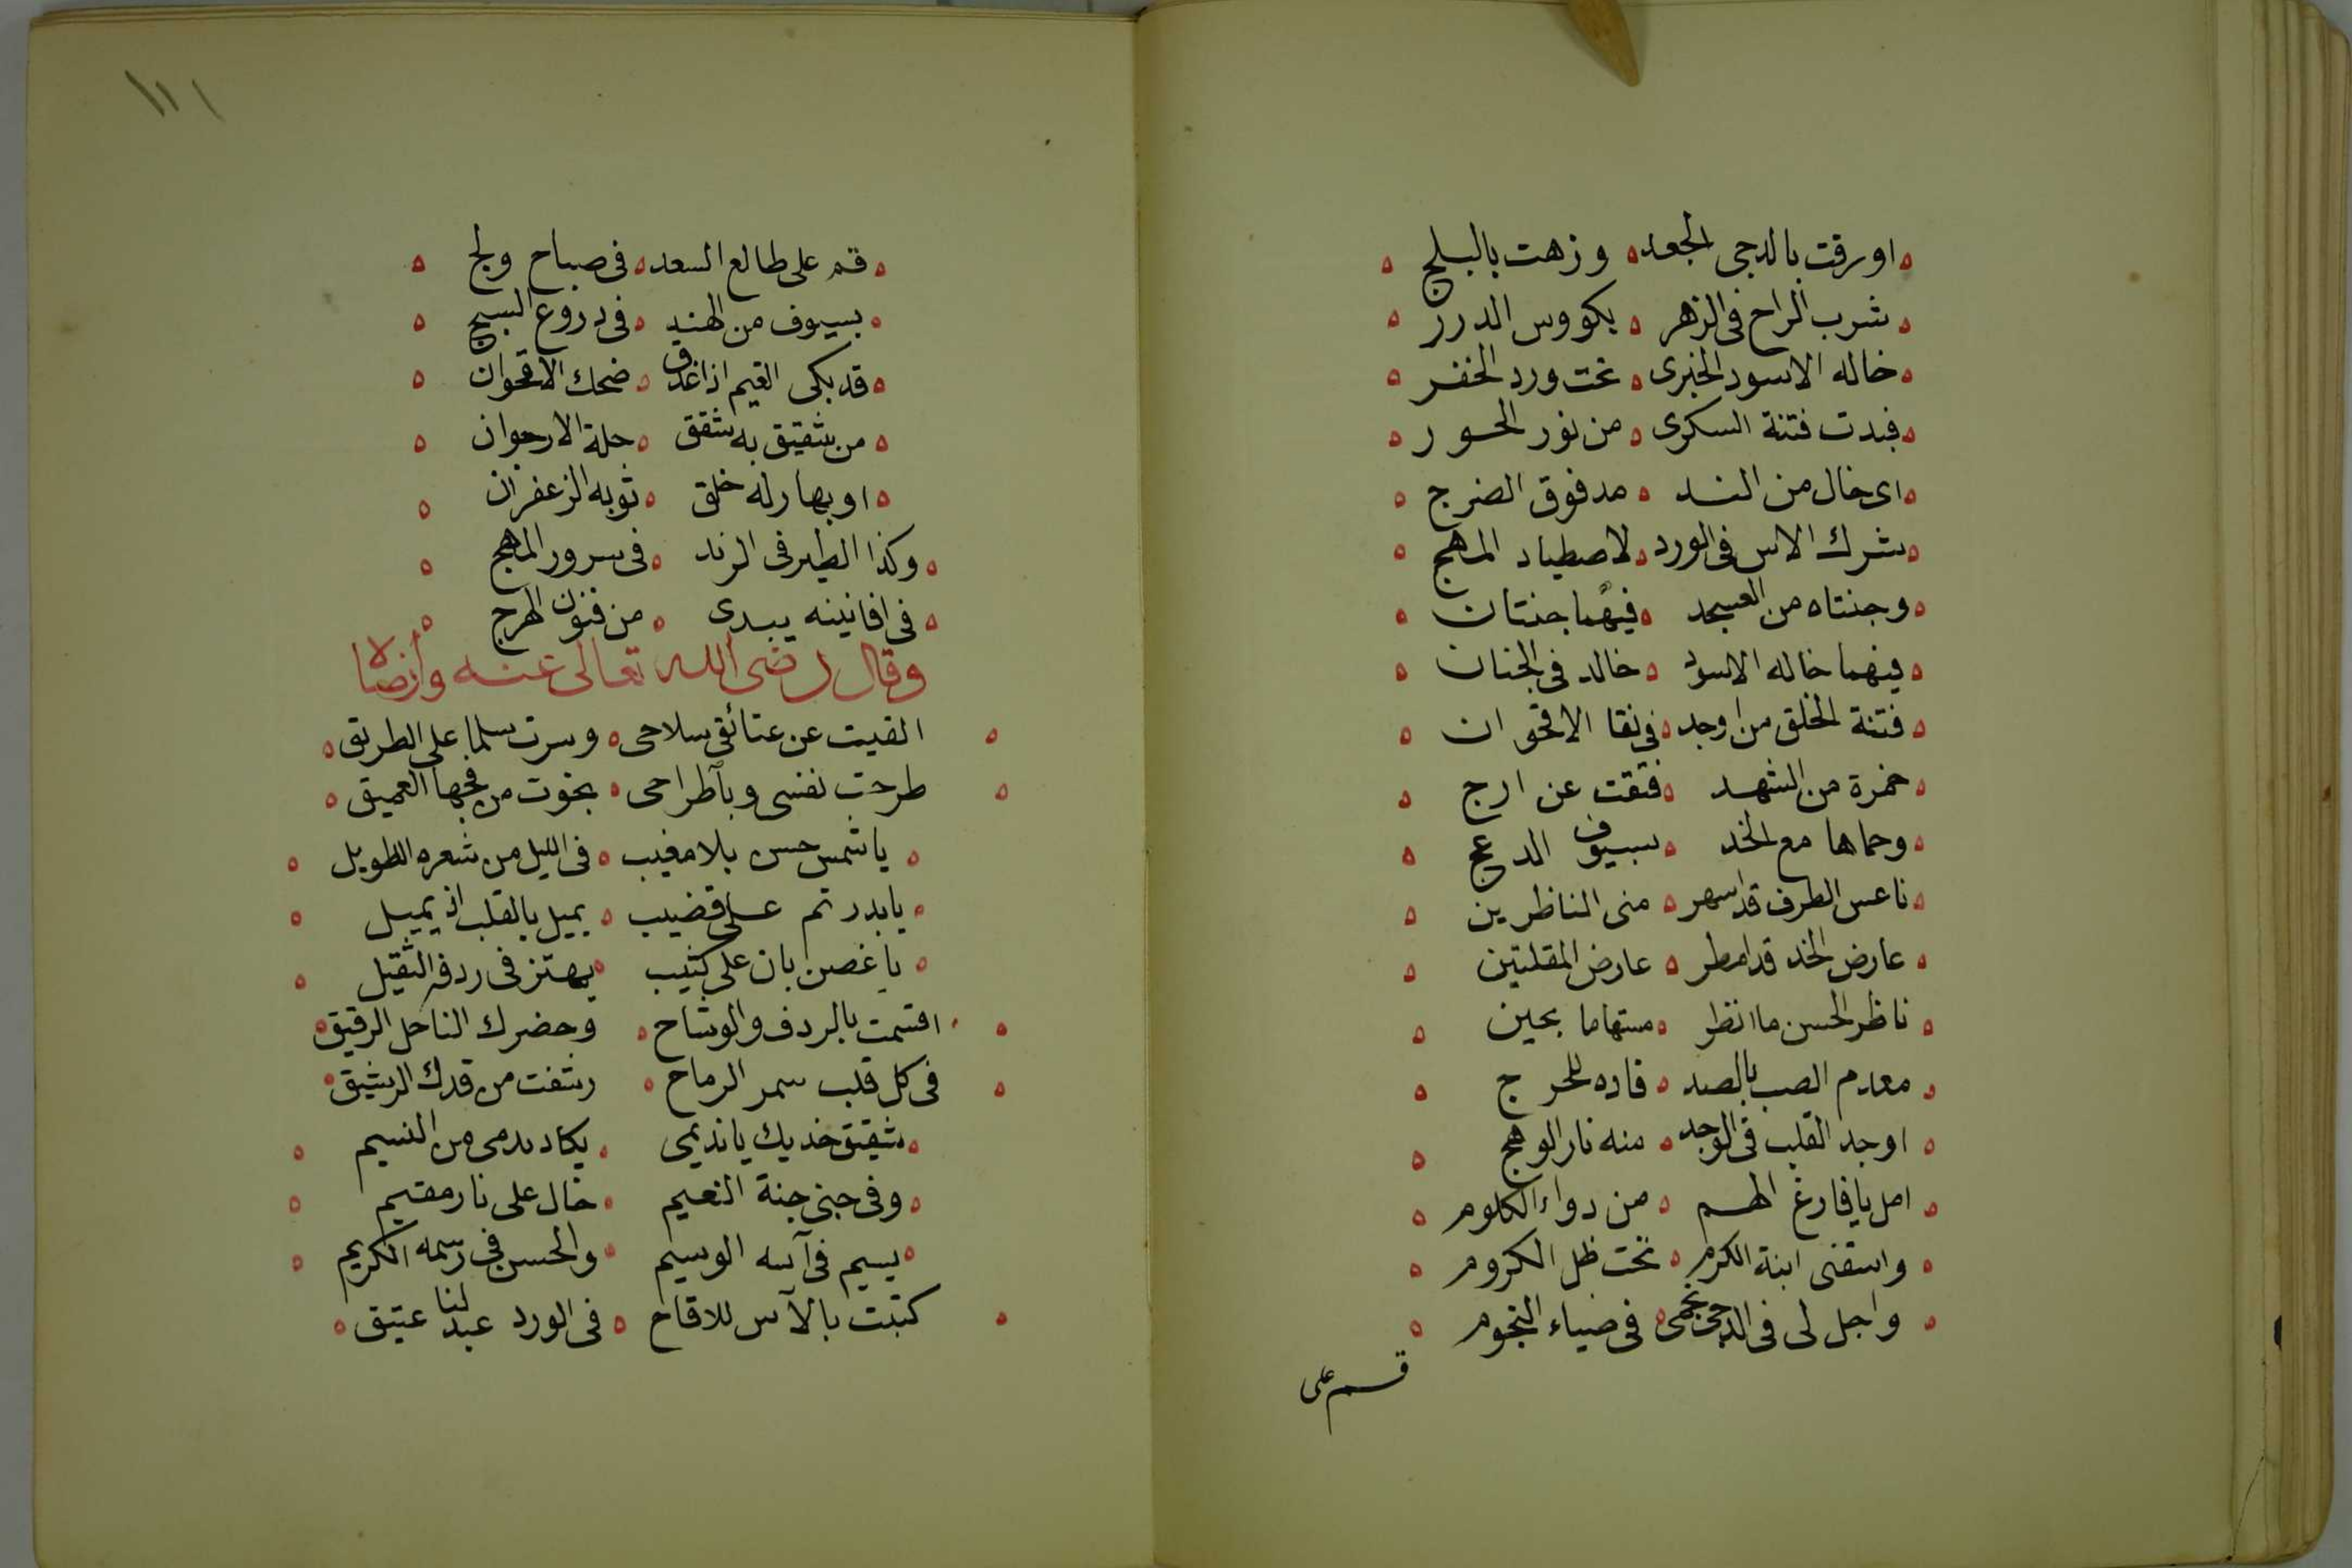 اورقت بالدجى الجعد ه وزهت بالبلج
شرب الراح فى الزهر ه بكووس الدرر
خاله الاسود الخبرى ه تحت ورد الخفر
فبدت فتنة السكرى ه من نور الحور
اى خال من الند ه مدفوق الضرج
شرك الاس فى الورد ه لاصطياد المهج
وجنتاه من العسجد ه فيهما جنتان
فيهما خاله الاسود ه خالد فى الجنان
فتنة الخلق من اوجد ه فى نقا الاقحوان
خمرة من الشهد ه فتقت عن ارج
وحماها مع الخد ه بسيوف الدعج
ناعس الطرف قد اسهر ه منى الناظرين
عارض الخد قد امطر ه عارض المقلتين
ناظر الحسن ما انظر ه مستهاما بحين
معدم الصب بالصد ه قاده للحرج
اوجد القلب فى الوجد ه منه نار الوهج
امل يا فارغ الهم ه من دواء الكلوم
واسقنى ابنة الكرم ه تحت ظل الكروم
واجل لى فى الدجى نجمى ه فى ضياء النجوم
قم على
١١١
قم على طالع السعد ه فى صباح ولج
بسيوف من الهند ه فى دروع السبج
قد بكى الغيم اذا غدق ه ضحك الاقحوان
من شقيق به شقق ه حلة الارجوان
او بهار له خلق ه ثوبه الزعفران
وكذا الطير فى الرند ه فى سرور المهج
فى افانينه يبدى ه من فنون الهرج
وقال رضى الله تعالى عنه وارضاه
القيت عن عتائقى سلاحى ه وسرت سلما على الطريق
طرحت نفسى وباطراحى ه نجوت من فجها العميق
يا شمس حسن بلا مغيب ه فى الليل من شعره الطويل
يا بدر تم على قضيب ه يميل بالقلب اذ يميل
يا غصن بان على كثيب ه يهتز فى ردفه الثقيل
اقسمت بالردف والوشاح ه وخصرك الناحل الرقيق
فى كل قلب سمر الرماح ه رشفت من قدك الرشيق
شقيق خديك يا نديمى ه يكاد يدمى من النسيم
وفى جنى جنة النعيم ه خال على نار مقيم
يسيم فى آسه الوسيم ه والحسن فى رسمه الكريم
كتبت بالآس للاقاح ه فى الورد عبد لنا عتيق